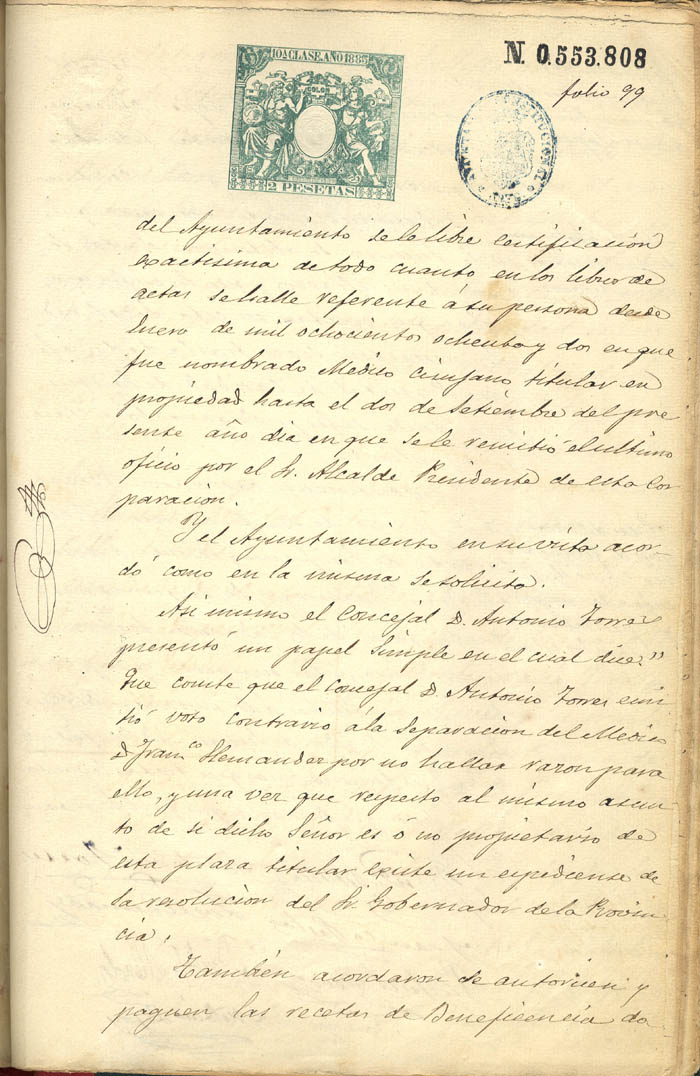 10ª CLASE. AÑO 1885
2 PESETAS
N. 0.553.808
folio 99
AYUNTAMIENTO CONSTITUCIONAL
del Ayuntamiento se le libre certificación
exactisima de todo cuanto en los libros de
actas se halle referente á su persona desde
Enero de mil ochocientos ochenta y dos en que
fue nombrado Medico Cirujano titular en
propiedad hasta el dos de Setiembre del pre
sente año dia en que se le remitió el ultimo
oficio por el Sr. Alcalde Presidente de esta Cor
poración.
Y el Ayuntamiento en su vista acor-
dó como en la misma se solicita.
Asi mismo el Concejal D. Antonio Torres
presentó un papel simple en el cual dice "
Que conste que el Concejal D. Antonio Torres emi
tió voto contrario á la separacion del Medico
D. Franco. Hernandez por no hallar razon para
ello, y una vez que respecto al mismo asun
to de si dicho Señor es ó no propietario de
esta plaza titular existe un expediente de
la resolucion del Sr. Gobernador de la Provin
cia.
Tambien acordaron se autoricen y
paguen las recetas de Beneficencia da